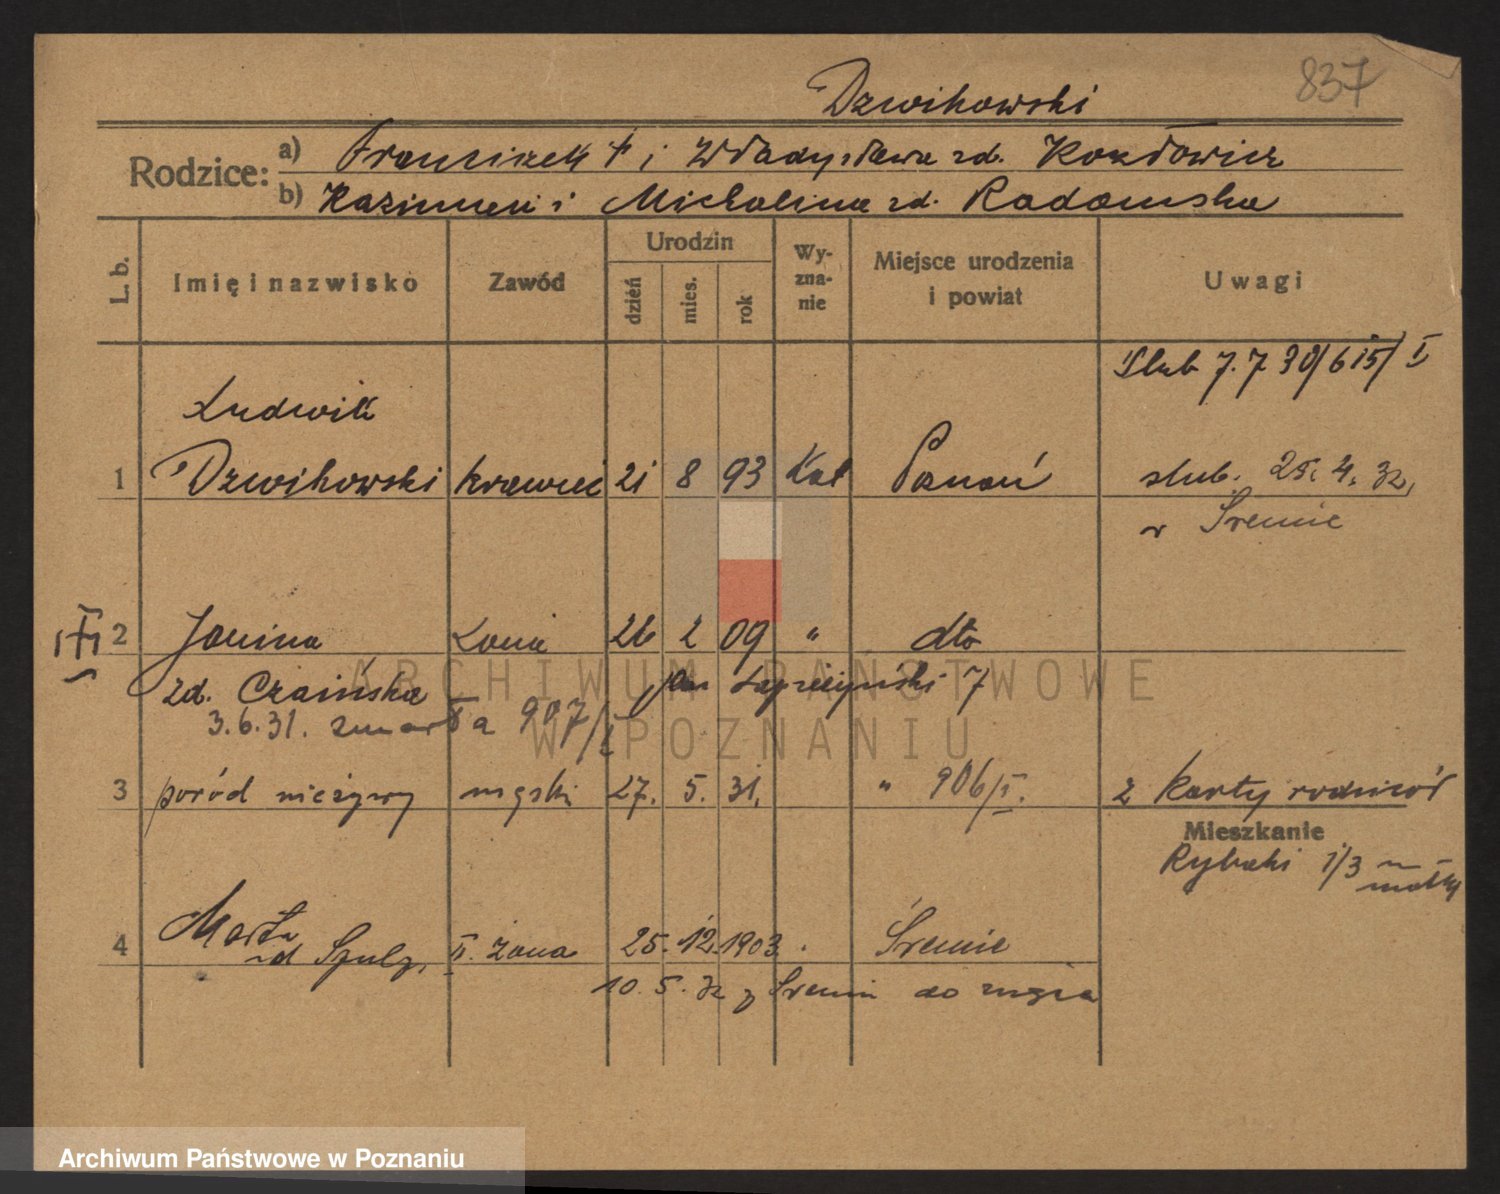 837
Dzwikowski
Rodzice: a) Franciszek † i Władysława zd. Kozłowicz
b) Kazimierz i Michalina zd. Radomska
L. b. Imię i nazwisko Zawód Urodzin dzień mies. rok Wyznanie Miejsce urodzenia i powiat Uwagi
Ślub 7.7 30/615/I
Ludwik
1 Dzwikowski krawiec 21 8 93 Kat Poznań ślub. 25. 4. 32,
w Śremie
2 Janina żona 26 2 09 " dto
zd. Czaińska Jan 7
3.6.31. zmarła 907/I
3 poród nieżywy męski 27. 5. 31. " 906/I. z karty rodziców
Mieszkanie
Rybaki 1/3
4 Marta II. żona 25. 12. 1903. Śremie
zd Szulz,
10. 5. 32 z Śremu do męża
ARCHIWUM PAŃSTWOWE
W POZNANIU
Archiwum Państwowe w Poznaniu